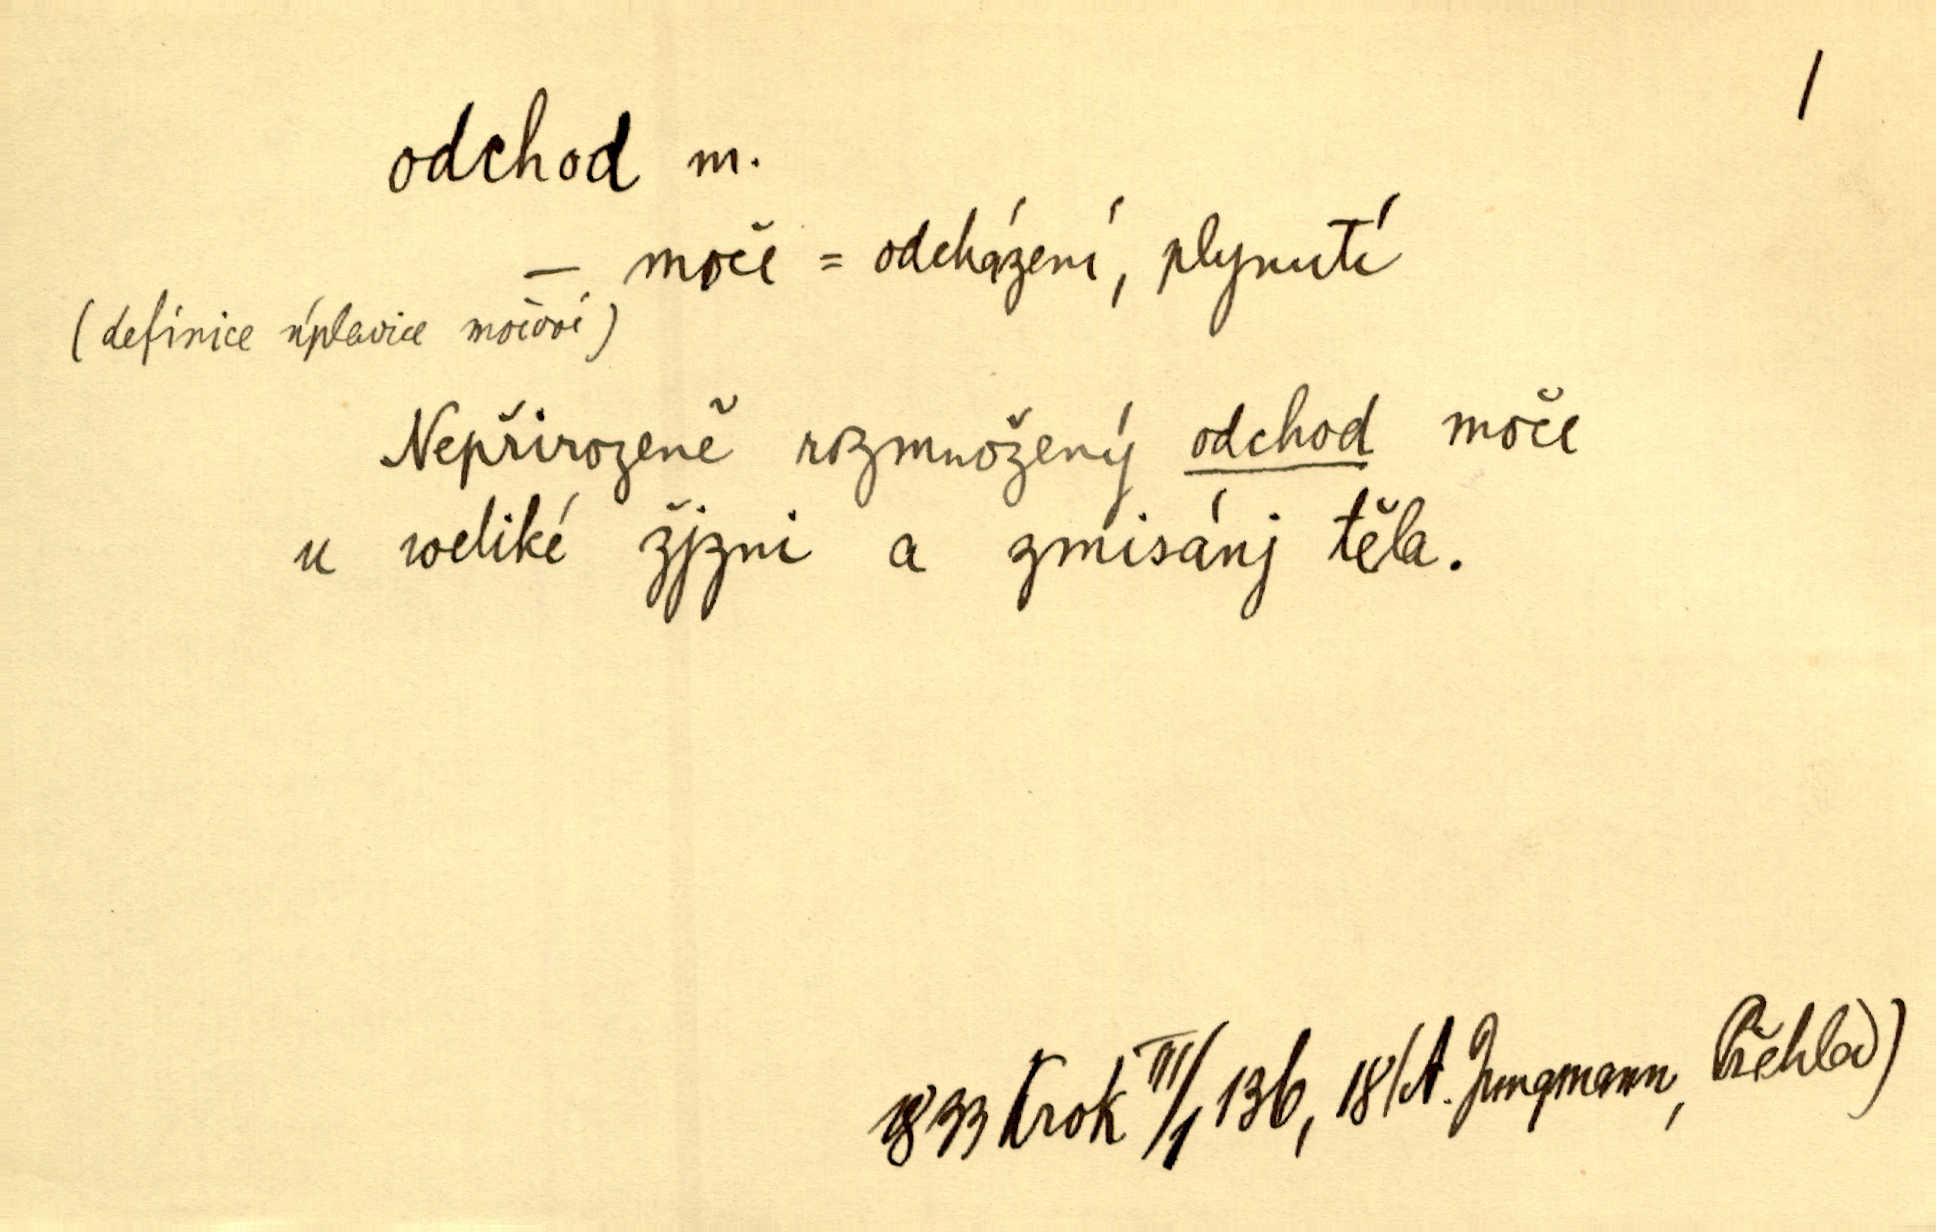 /
odchod m.
— moče = odcházení, plynutí
(definice úplavice močové)
Nepřirozeně rozmnožený odchod moče
u weliké žjzni a zmisánj těla.
1833 Krok III/1, 136, 18 (A. Jungmann, Přehled)